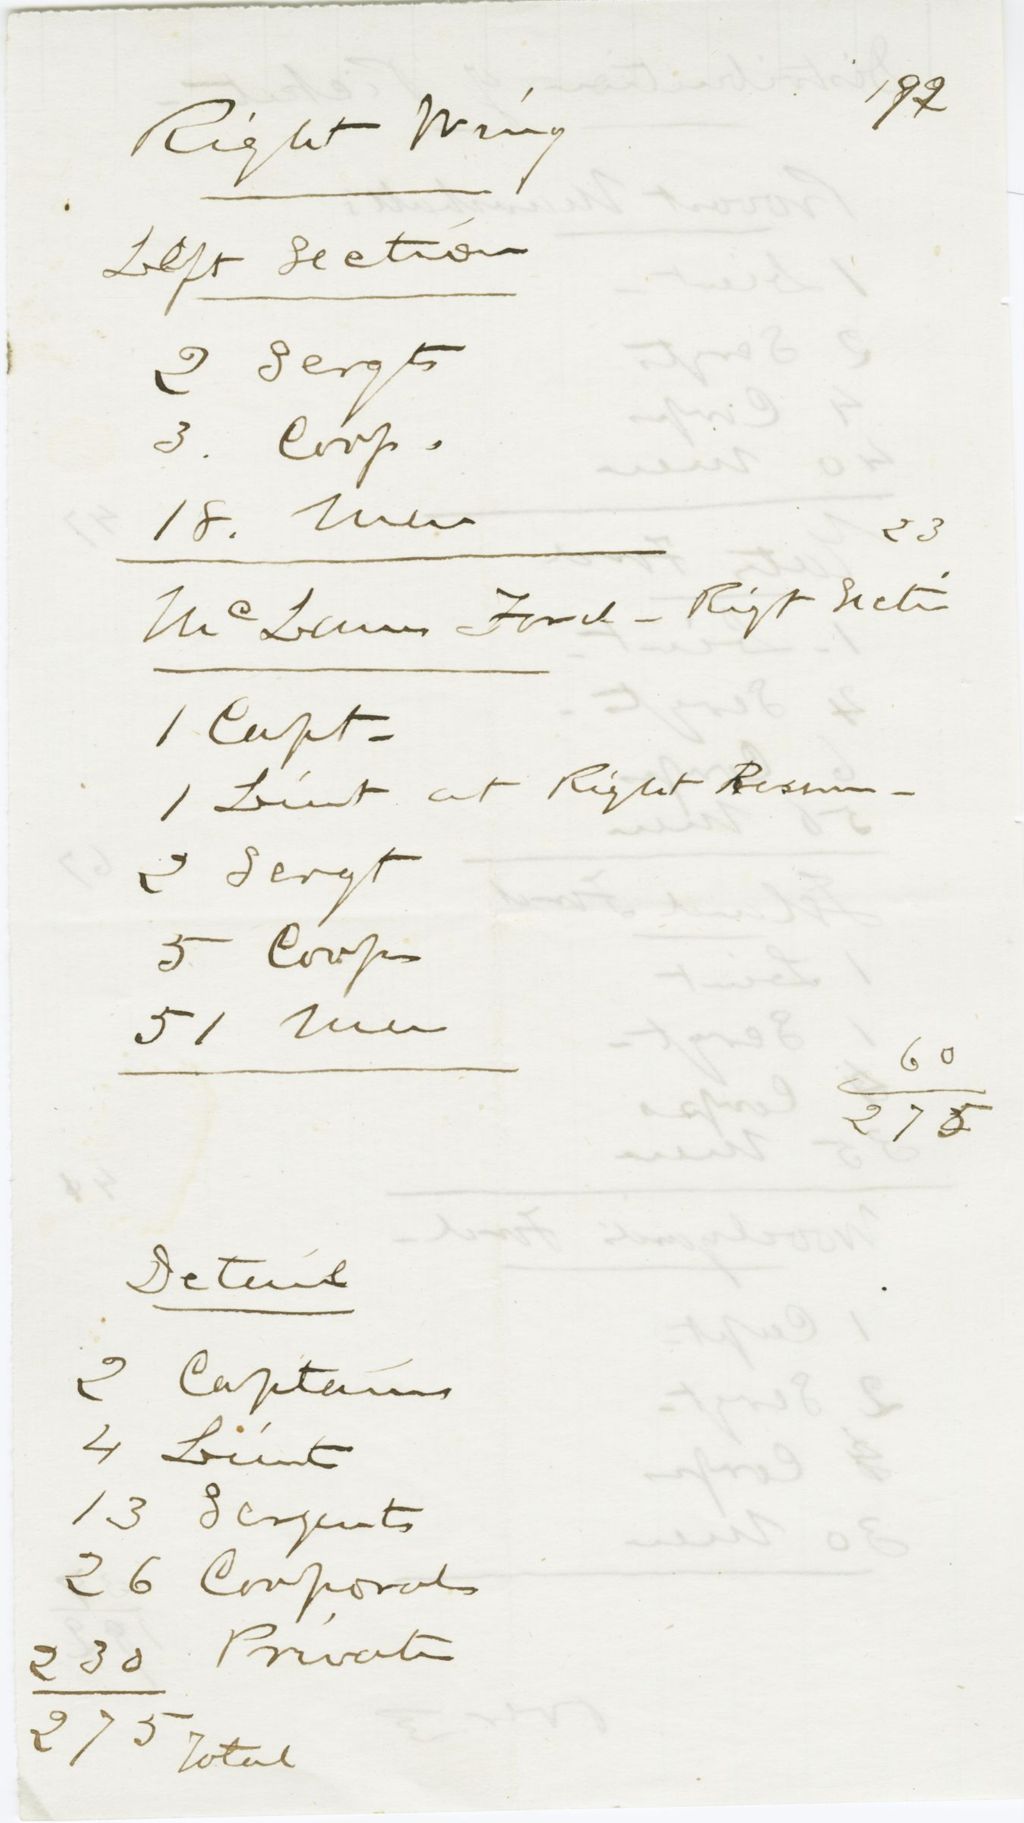 192
Right Wing
Left Section
2 Sergts
3. Corp.
18. Men
23
McLaws Ford - Rigt Secti
1 Capt-
1 Lieut at Right
2 Sergt
5 Corps
51 Men
60
275
Detail
2 Captains
4 Lieut
13 Sergents
26 Corporals
230 Private
275 Total